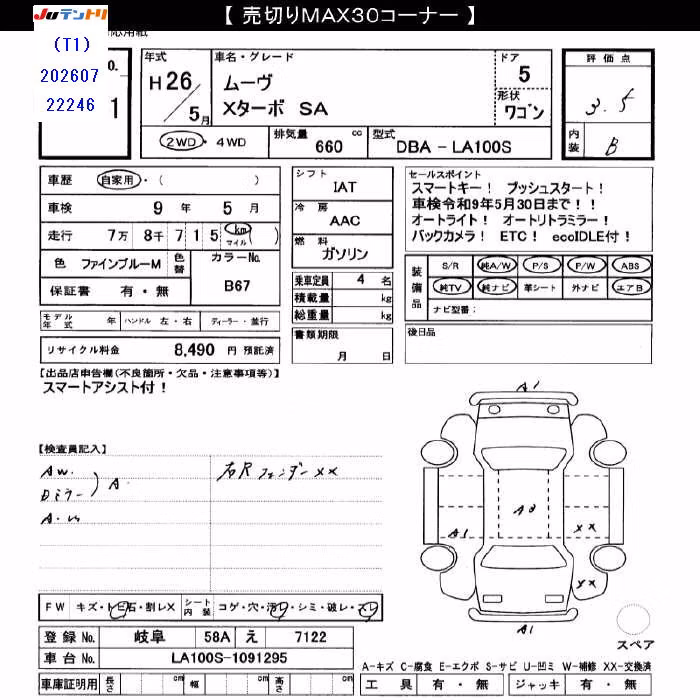 【 売切りMAX30コーナー 】
JUテントリ
(T1)
202607
22246
1
年式
H26/5月
車名・グレード
ムーヴ
Xターボ SA
ドア
5
形状
ワゴン
評価点
3.5
内装
B
2WD・4WD
排気量 660 cc
型式 DBA-LA100S
車歴 自家用・( )
車検 9年 5月
走行 7万 8千 7 1 5 km マイル ( )
色 ファインブルーM 色替 カラーNo. B67
保証書 有・無
モデル年式 年 ハンドル 左・右 ディーラー・並行
リサイクル料金 8,490 円 預託済
シフト
IAT
冷房
AAC
燃料
ガソリン
乗車定員 4 名
積載量 kg
総重量 kg
書類期限
月 日
セールスポイント
スマートキー! プッシュスタート!
車検令和9年5月30日まで!!
オートライト! オートリトラミラー!
バックカメラ! ETC! ecoIDLE付!
装備品
S/R 純A/W P/S P/W ABS
純TV 純ナビ 革シート 外ナビ エアB
ナビ型番:
後日品
【出品店申告欄(不良箇所・欠品・注意事項等)】
スマートアシスト付!
【検査員記入】
AW.
Dミラー ) A.
右Rフェンダー XX
A1
A1
XX
XX
A1
FW キズ・トビ石・割レX シート内装 コゲ・穴・汚レ・シミ・破レ・スレ
登録No. 岐阜 58A え 7122
車台No. LA100S-1091295
車庫証明用 長さ cm 幅 cm 高さ cm
スペア
A-キズ C-腐食 E-エクボ S-サビ U-凹ミ W-補修 XX-交換済
工具 有・無 ジャッキ 有・無